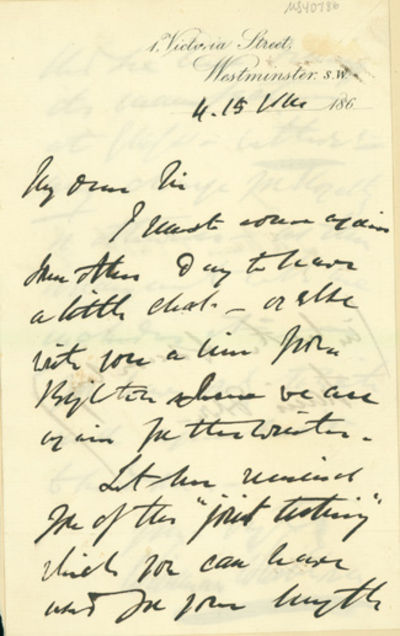 MS40786
1, Victoria Street,
Westminster. S.W.
4.15 186
My dear Sir
I must come again
some other Day to have
a little chat - or else
with you a line from
Brighton where we are
again for the winter -
Let me remind
you of the "joint testing"
which you can have
used for your